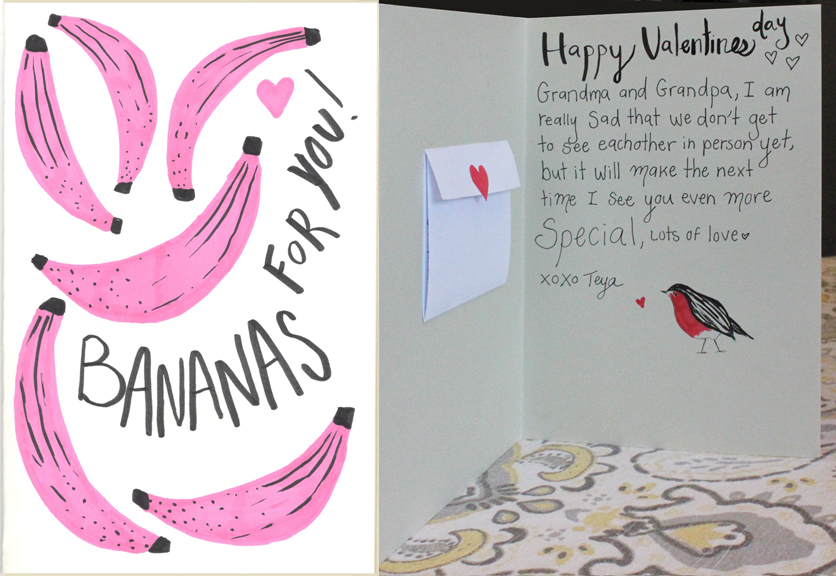 BANANAS
FOR YOU!
Happy Valentines day
Grandma and Grandpa, I am
really Sad that we don't get
to see eachother in person yet,
but it will make the next
time I see you even more
Special, Lots of love
xoxo Teya